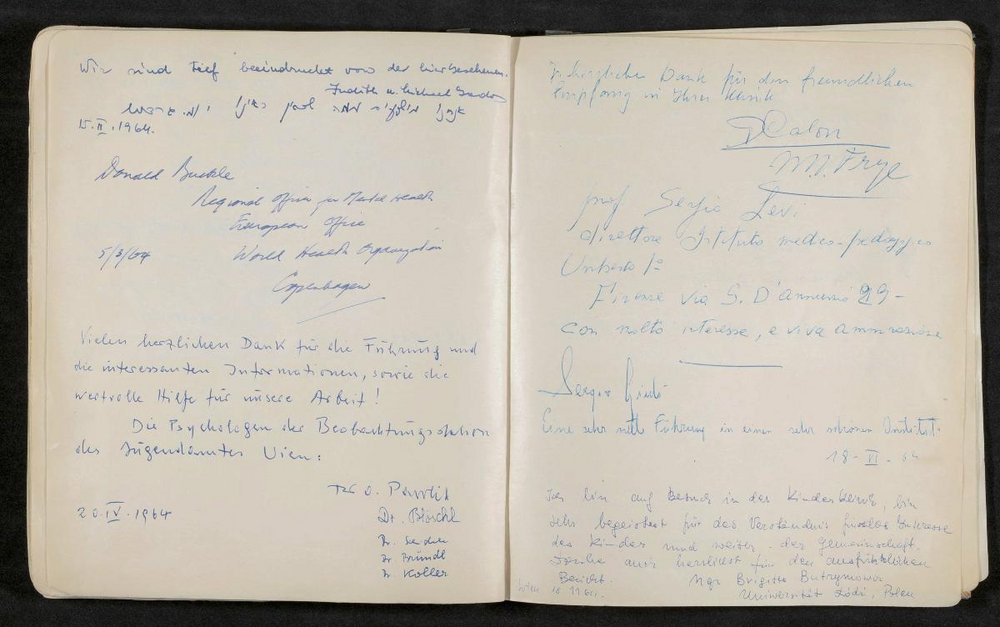 Wir sind tief beeindruckt von der hier Gesehenen.
Judith u. Michael
15.II.1964.
Donald Buckle
Regional Officer for Mental Health
European Office
5/3/64 World Health Organization
Copenhagen
Vielen herzlichen Dank für die Führung und
die interessanten Informationen, sowie die
wertvolle Hilfe für unsere Arbeit!
Die Psychologen der Beobachtungsstation
des Jugendamtes Wien:
20.IV.1964
Dr. Böschl
Dr. Bründl
Dr. Koller
Dank für den freundlichen
Empfang in Ihrer Klinik
M. Frye
Prof Sergio Levi
direttore Istituto medico-pedagogico
Umberto Iº
Firenze via G. D'Annunzio 29 -
con molto interesse, e viva ammirazione
Sergio
Eine sehr nette Führung in einem sehr schönen
18-VI-64
Ich bin auf Besuch in der Kinderklinik, bin
sehr begeistert für das Verständnis für das Interesse
der Kinder und weiter der Gemeinschaft.
Danke auch herzlichst für den ausführlichen
Bericht. Mgr Brigitta
Wien Universität Łódź, Polen